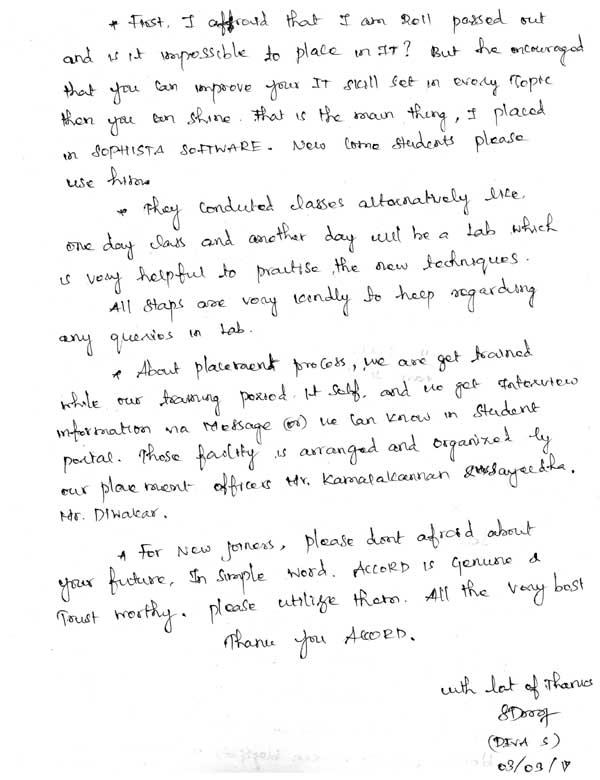 * First, I affraid that I am 2011 passed out
and is it impossible to place in IT? But he encouraged
that you can improve your IT skill set in every Topic
then you can shine. That is the main thing, I placed
in SOPHISTA SOFTWARE. New come students please
use him.
* They conducted classes alternatively like,
one day class and another day will be a Lab which
is very helpful to practise the new techniques.
All staps are very kindly to help regarding
any queries in Lab.
* About placement process, we are get trained
while our training period it self, and we get Interview
information via Message (or) we can know in student
portal. Those facility is arranged and organized by
our placement officers Mr. Kamalakannan & Sayeedha.
Mr. Diwakar.
* For New joiners, please dont afraid about
your future, In simple word. ACCORD is Genuine &
Trust worthy. please utilize them. All the very best
Thank you ACCORD.
with lot of Thanks
(DIVA S)
03/03/17